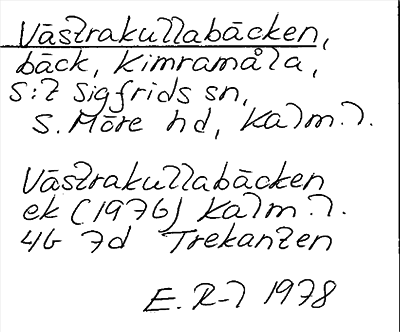 Västrakullabäcken,
bäck, Kimramåla,
S:t Sigfrids sn,
S. Möre hd, Kalm.l.
Västrakullabäcken
ek (1976) Kalm.l.
4G 7d Trekanten
E. R-l 1978